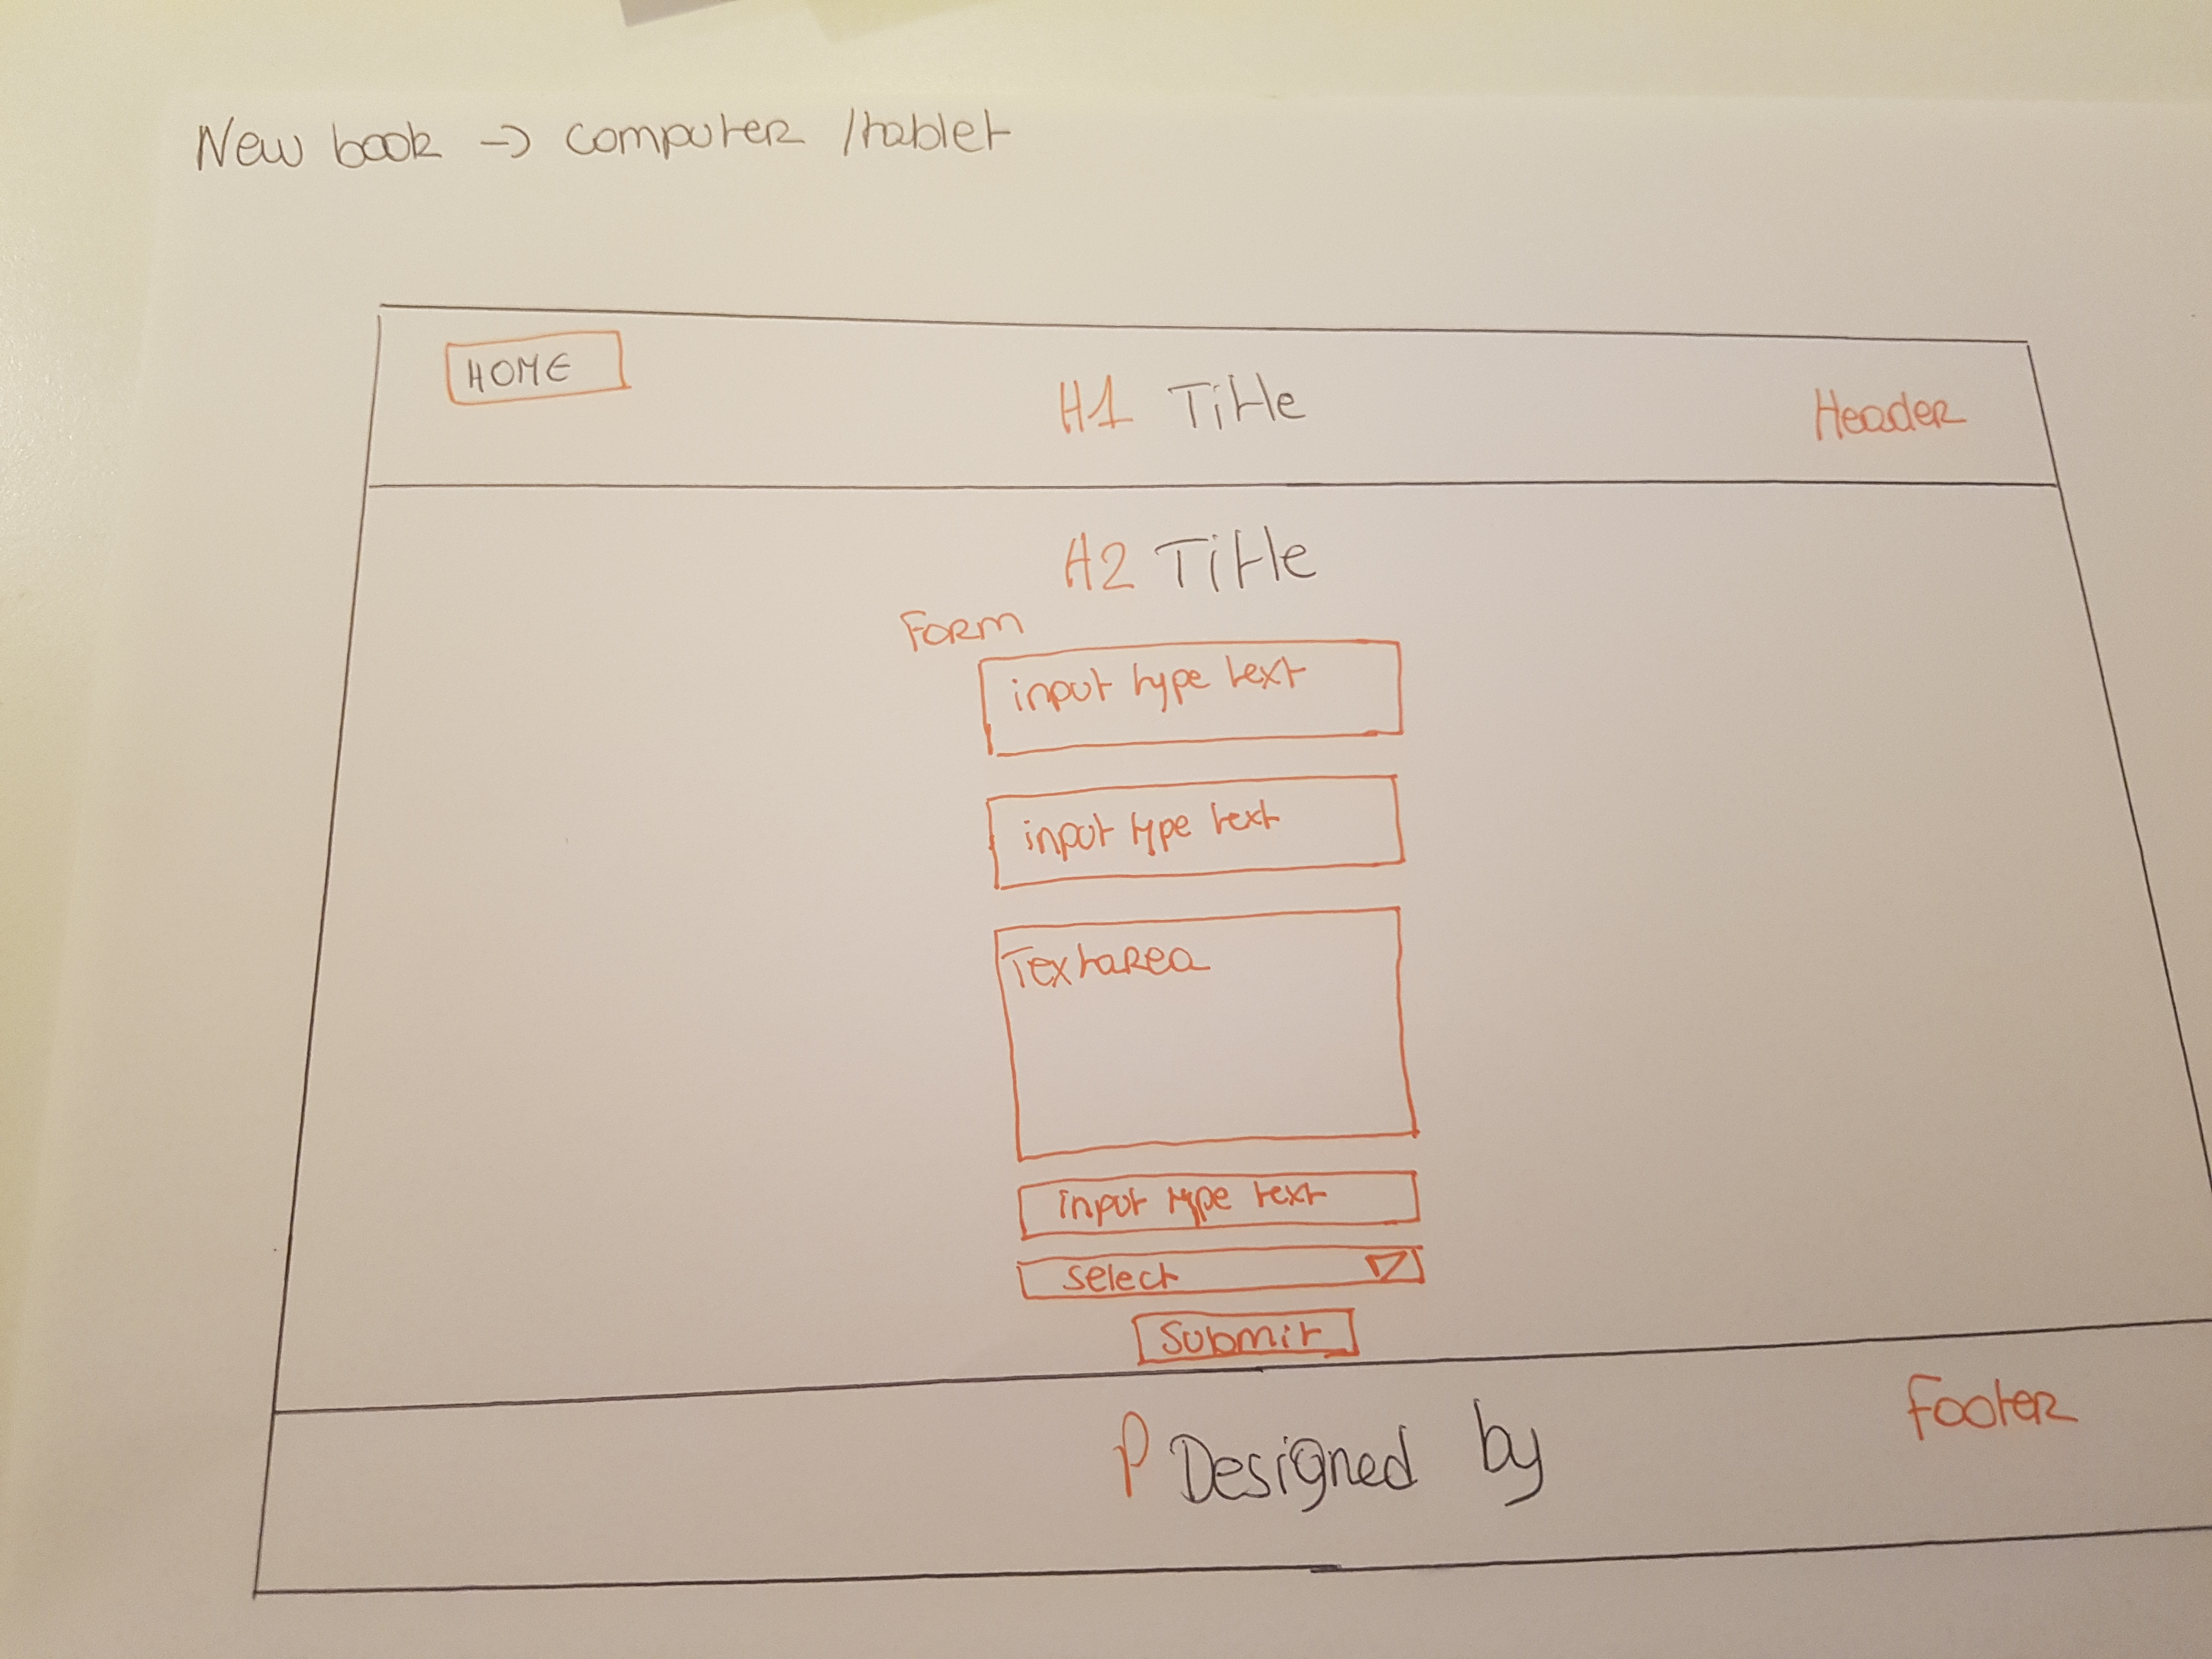 New book -> computer /tablet
HOME
H1 Title
Header
H2 Title
Form
input type text
input type text
Textarea
input type text
select
Submit
P Designed by
Footer